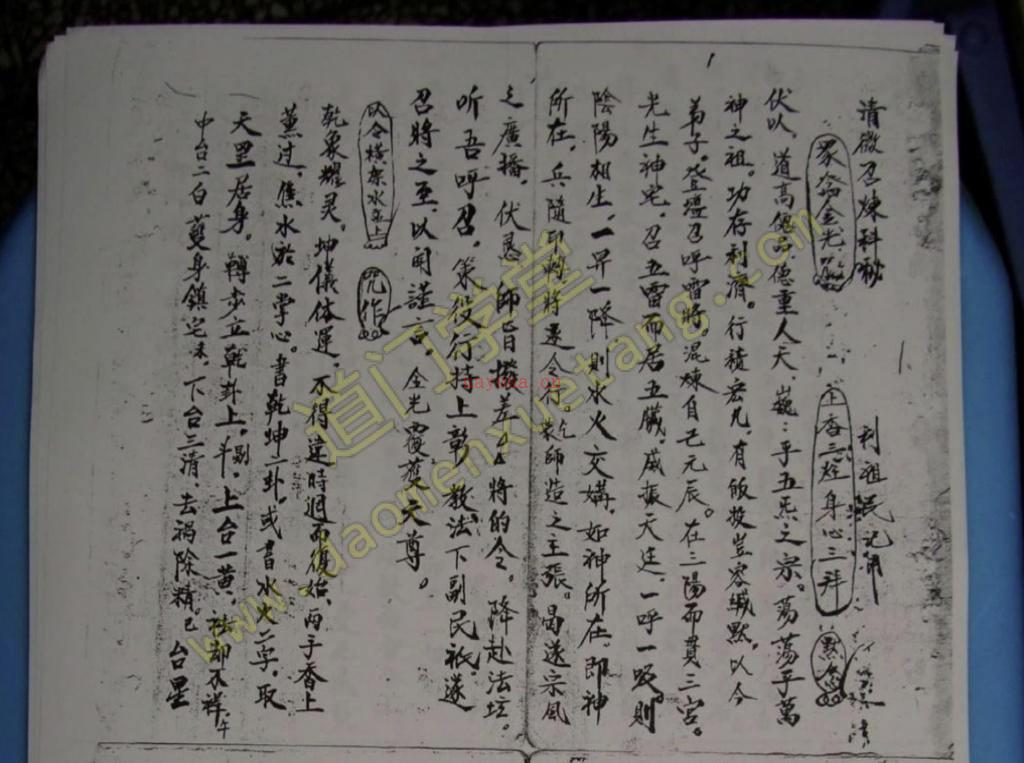 清微召煉科秘 利祖民記用
聚 金光 上香三炷身心三拜 默念
伏以，道高 德重人天 巍：乎五炁之宗。蕩蕩乎萬
神之祖。功存利濟。行積宏 。有皈投豈容緘默。以今
弟子。登壇召呼雷將。混煉自己元辰。在三陽而貫三宮。
光生神宅。召五雷而居五臟。威振天廷。一呼一吸。則
陰陽相生。一昇一降。則水火交媾。如神所在。即神
所在。兵隨印轉將逐令行。乾師造之主張。曷遂宗風
之廣播。伏息 師旨撥差 將的令。降赴法坛。
听吾呼召。策役行持上彰教法下副民祇。遂
召將之至。以開謹 。金光覆護天尊。
以令橫架水盂上 咒作
乾象耀灵。坤儀体運。不得違時迴而復始。两手香上
薰过。焦水於二掌心。書乾坤二卦。或書水火二字。取
天罡居身。轉步立乾卦上。剔斗。上台一黄。祛却不祥。午
中台二白護身鎮宅未。下台三清。去禍除精。巳 台星
www.daomenxuetang.com
道门学堂